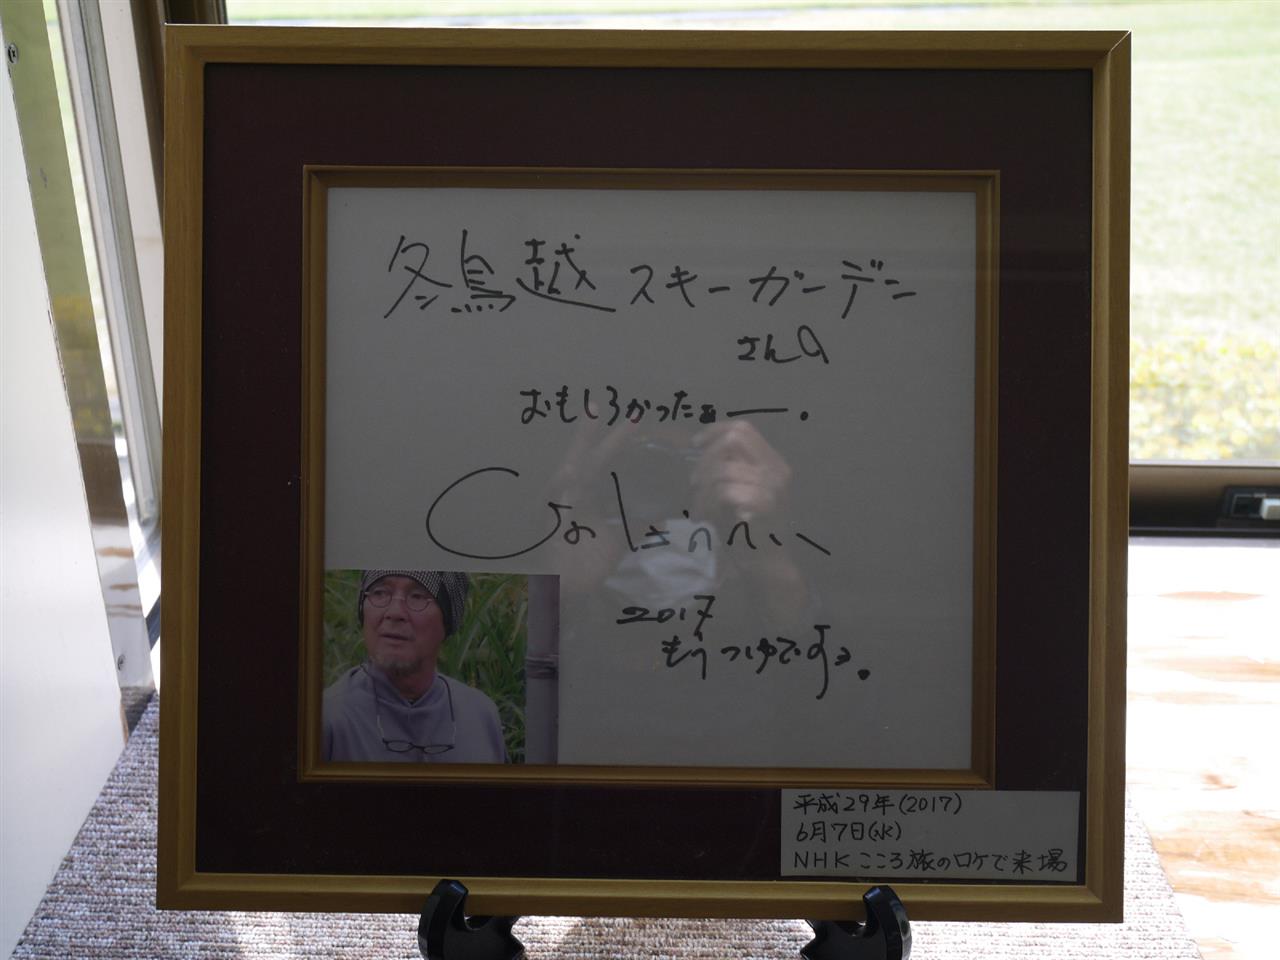 冬鳥越スキーガーデン
さんの
おもしろかったぁー.
2017
もうつゆです。
平成29年(2017)
6月7日(水)
NHK こころ旅のロケで来場